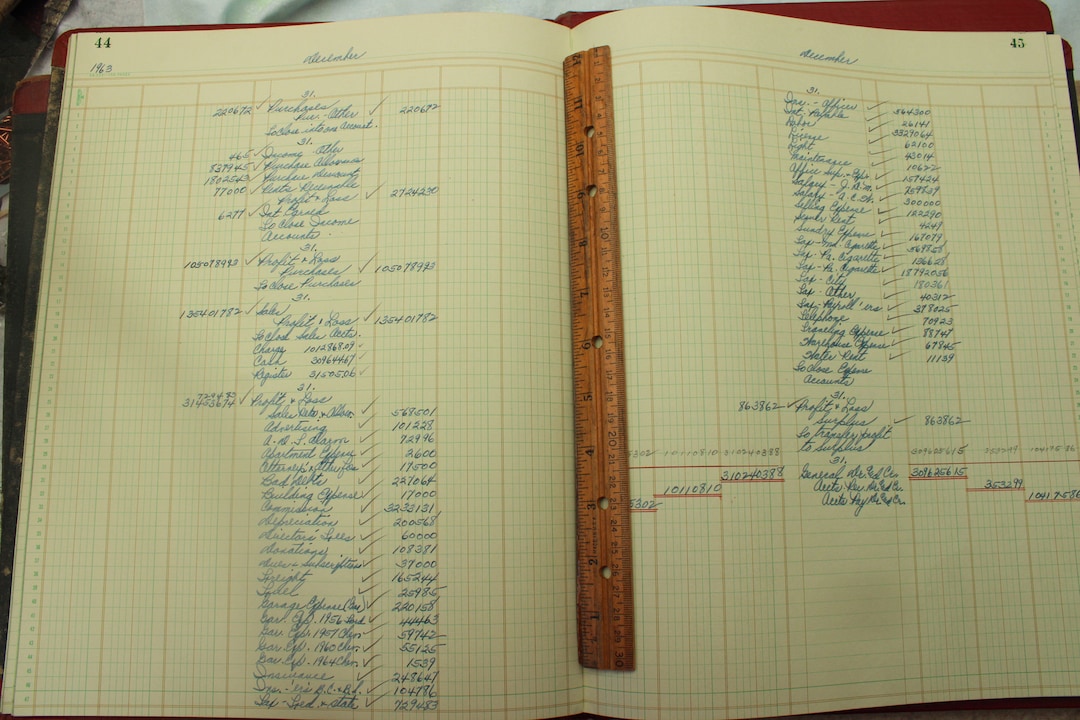 44
December
1963
31.
220672 ✓ Purchases ✓ 220672
Pur. - Other
To Close into one Account.
31.
465 ✓ Income Other
837945 ✓ Purchase Allowance
1802543 ✓ Purchase Discounts
77000 ✓ Rents Receivable
Profit & Loss ✓ 2724230
6277 ✓ Int Earned
To Close Income
Accounts.
31.
105078993 ✓ Profit & Loss
Purchases ✓ 105078993
To Close Purchases
31.
135401782 ✓ Sales
Profit & Loss ✓ 135401782
To Close Sales Accts.
Charge 101286809 ✓
Cash 30964467 ✓
Register 3150506 ✓
31.
729483
31453674 ✓ Profit & Loss
Sales Rets & Allow. ✓ 568501
Advertising ✓ 101228
A.D.T. Alarm ✓ 72996
Apartment Expense ✓ 2600
Attorney's ✓ 17500
Bad Debts ✓ 227064
Building Expense ✓ 17000
Commission ✓ 3233131
Depreciation ✓ 200568
Director's Fees ✓ 60000
Donations ✓ 108381
Dues & Subscriptions ✓ 37000
Freight ✓ 165244
Fuel ✓ 25985
Garage Expense (Gas) ✓ 220158
Gar. Exp. 1956 Ford ✓ 44463
Gar. Exp. 1957 Chev. ✓ 59742
Gar. Exp. 1960 Chev. ✓ 55125
Gar. Exp. 1964 Chev. ✓ 1539
Insurance ✓ 248647
Ins. - ✓ 104786
Tax - Fed. & State ✓ 729483
45
December
31.
Ins. - Officer ✓ 564300
Int. Payable ✓ 26141
Labor ✓ 3329064
License ✓ 62100
Light ✓ 43014
Maintenance ✓ 10622
Office Sup. & Exp. ✓ 157424
Salary - J.D.M. ✓ 759839
Salary - A.C.W. ✓ 300000
Selling Expense ✓ 122290
Sewer Rent ✓ 4249
Sundry Expense ✓ 167079
Tax - Md. Cigarette ✓ 569858
Tax - Pa. Cigarette ✓ 156628
Tax - Pa. Cigarette ✓ 18792056
Tax - City ✓ 180361
Tax - Other ✓ 40312
Tax - Payroll 'ers ✓ 378025
Telephone ✓ 70923
Traveling Expense ✓ 88747
Warehouse Expense ✓ 67845
Water Rent ✓ 11139
To Close Expense
Accounts
31.
863862 ✓ Profit & Loss
Surplus ✓ 863862
To transfer profit
to Surplus
5302 10110810 310240388 309625615 353299
31.
310240388 General Dr. & Cr. 309625615
10110810 Accts Rec Dr. & Cr. 353299
5302 Accts Pay Dr. & Cr. 10417586